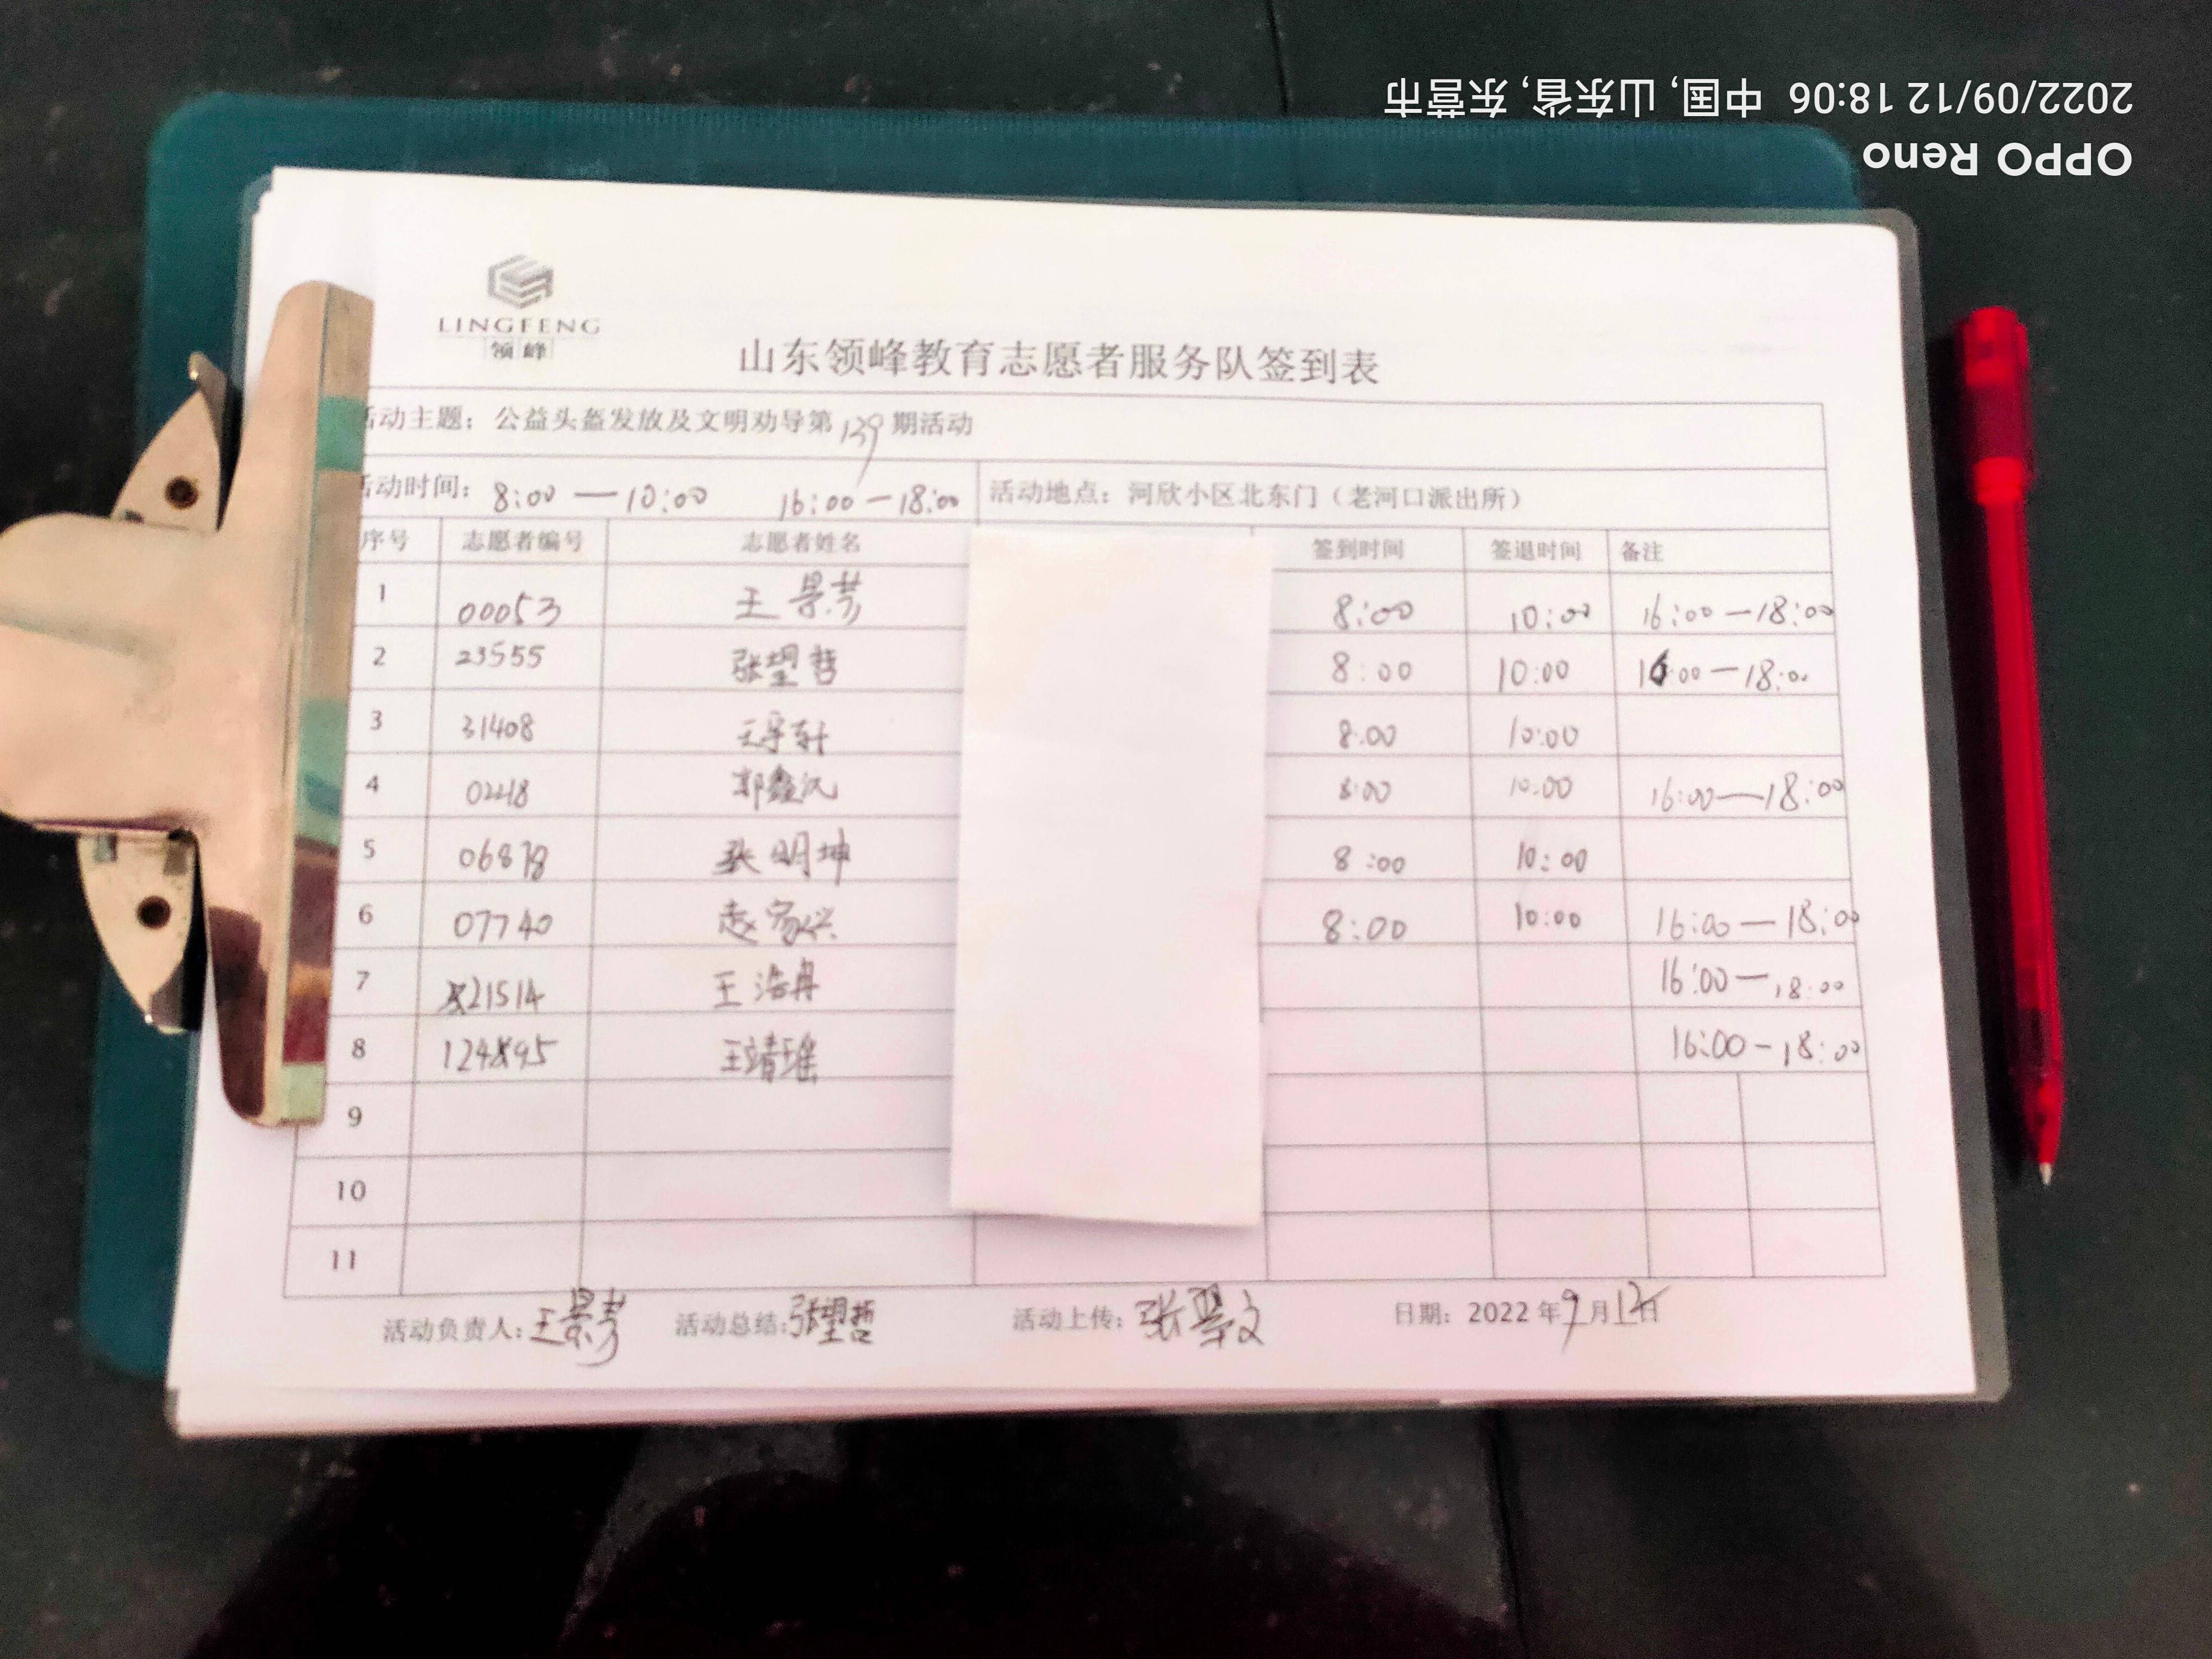 2022/09/12 18:06 中国, 山东省, 东营市
OPPO Reno
LINGFENG
领峰
山东领峰教育志愿者服务队签到表
活动主题：公益头盔发放及文明劝导第139期活动
活动时间：8:00—10:00 16:00—18:00 活动地点：河欣小区北东门（老河口派出所）
序号 志愿者编号 志愿者姓名 签到时间 签退时间 备注
1 00053 王景芳 8:00 10:00 16:00—18:00
2 23555 张望哲 8:00 10:00 16:00—18:00
3 31408 王宇轩 8:00 10:00
4 郭鑫汉 8:00 10:00 16:00—18:00
5 张明坤 8:00 10:00
6 07740 赵家兴 8:00 10:00 16:00—18:00
7 21514 王浩冉 16:00—18:00
8 王靖瑶 16:00—18:00
9
10
11
活动负责人：王景芳 活动总结：张望哲 活动上传：张翠文 日期：2022年9月12日